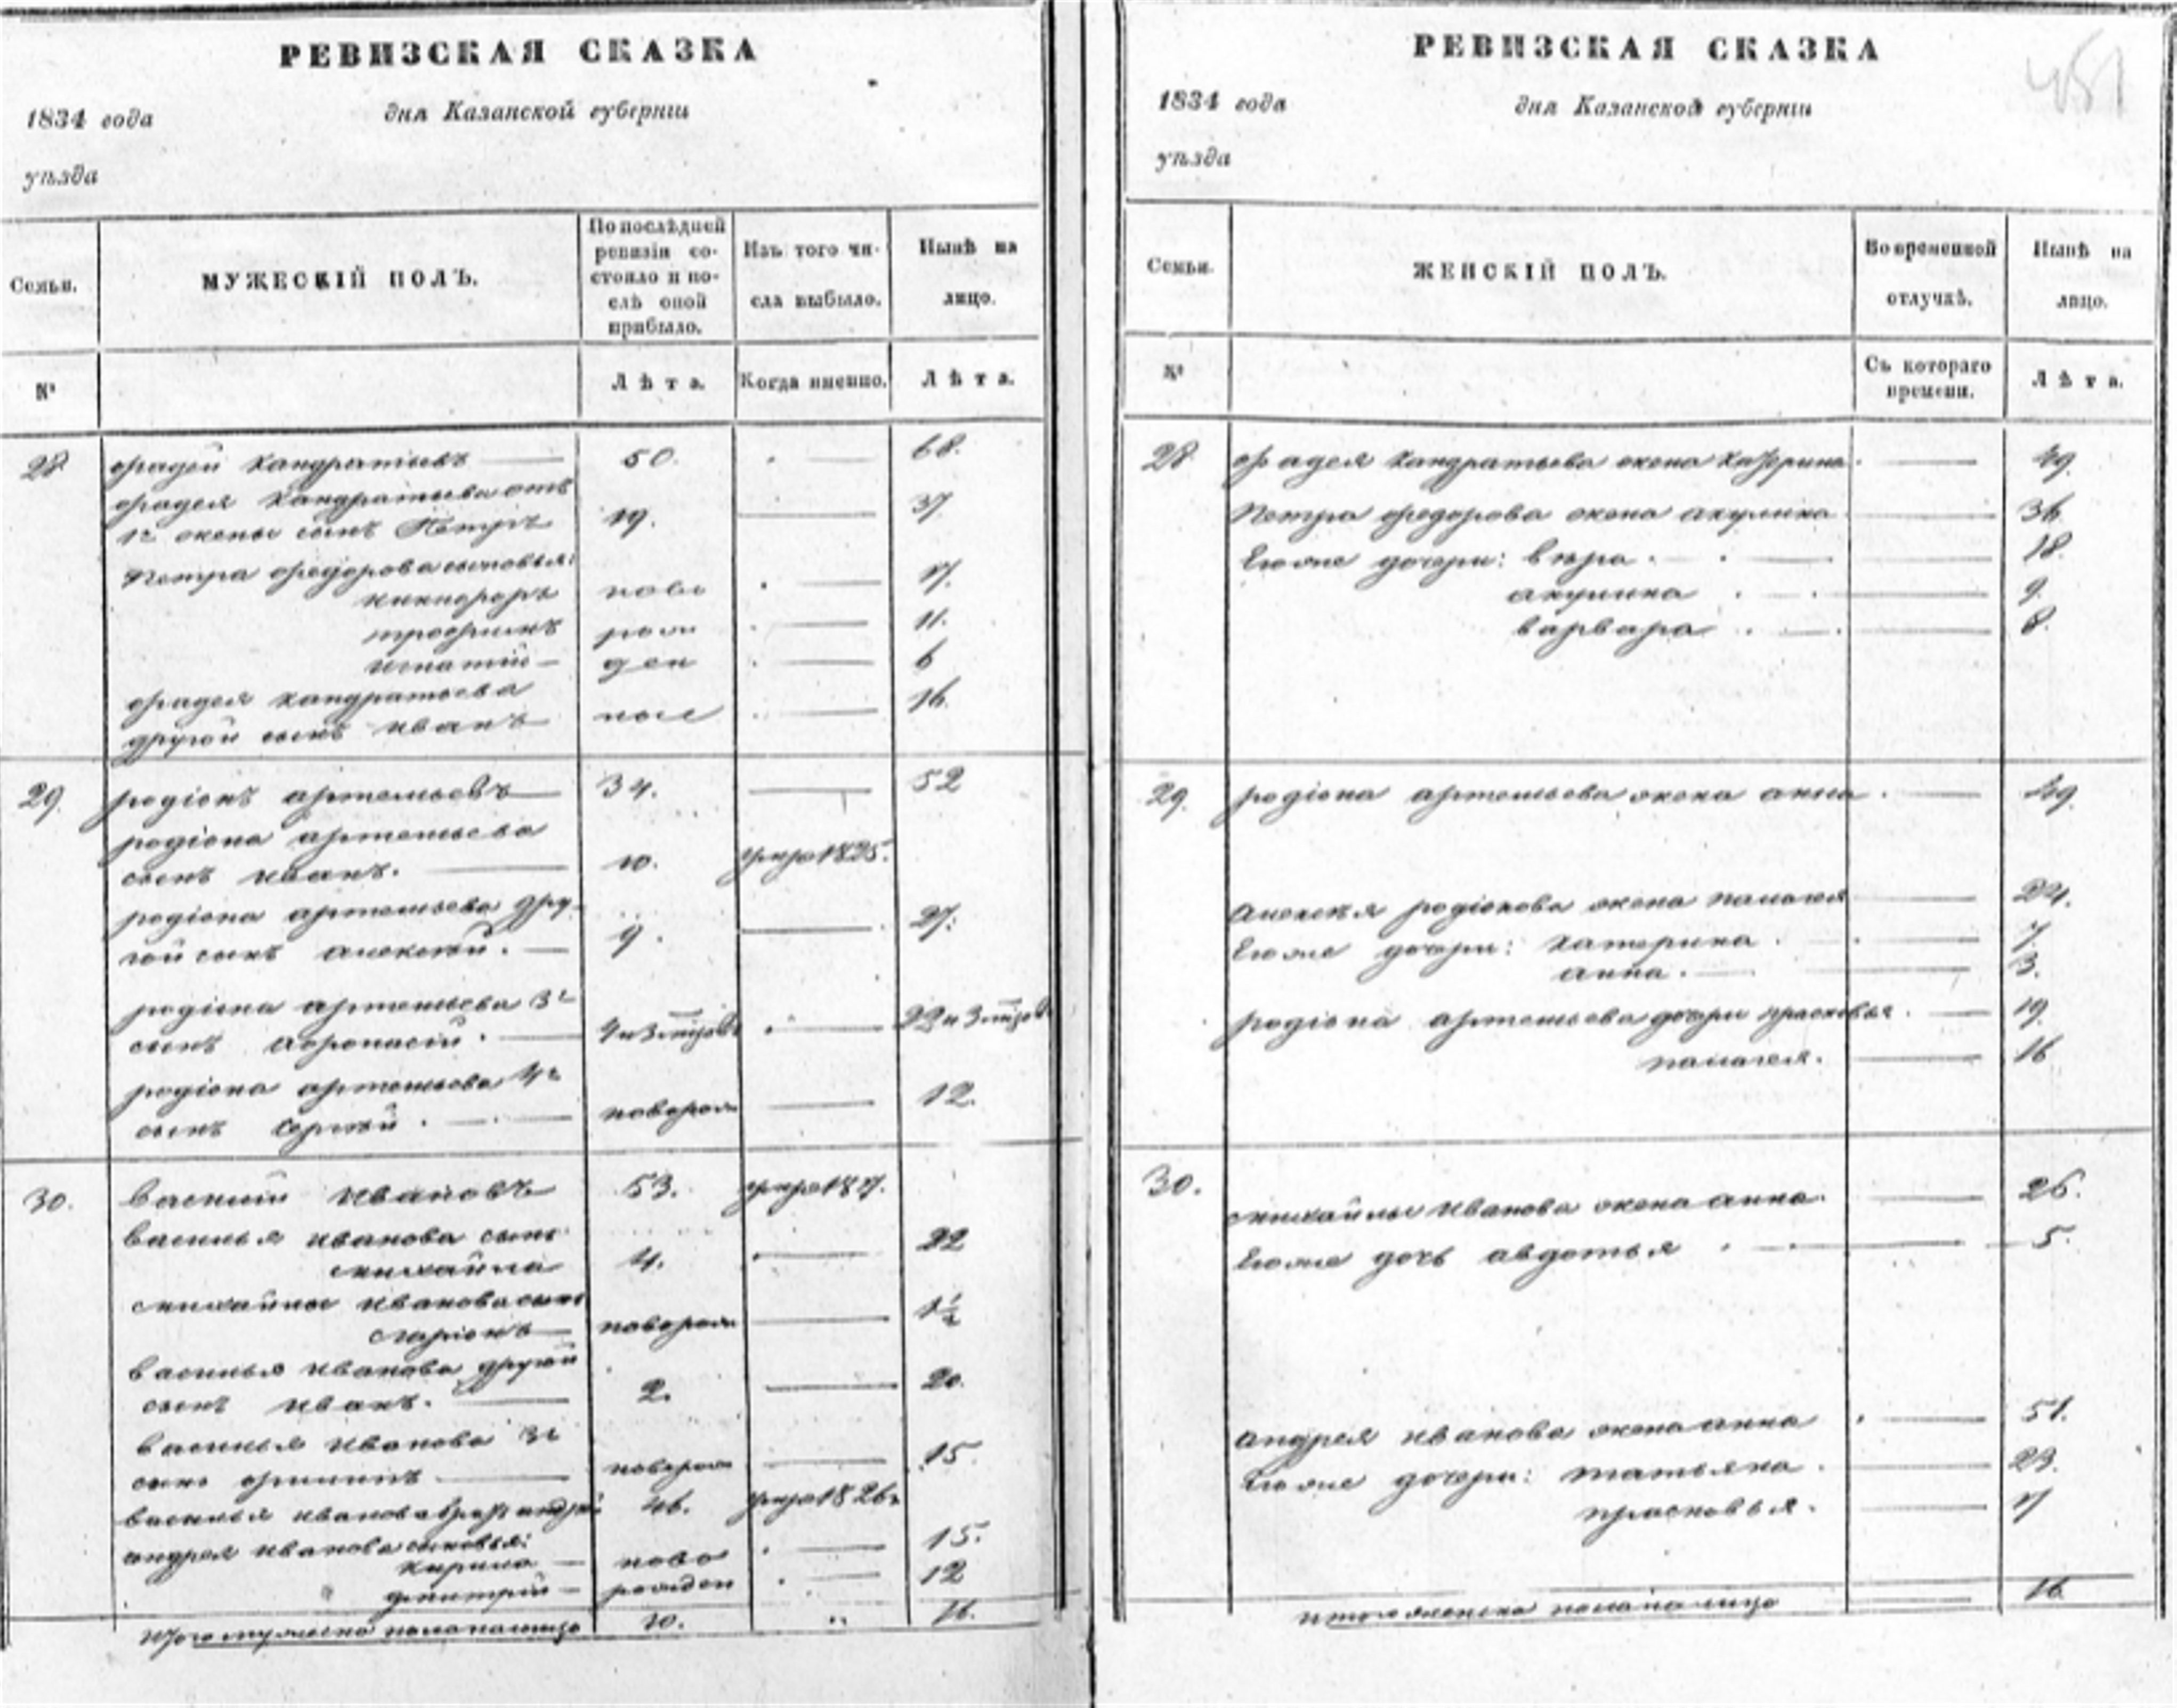 РЕВИЗСКАЯ СКАЗКА
1834 года
дня Казанской губернiи
уѣзда
Семьи.
МУЖЕСКIЙ ПОЛЪ.
По послѣдней ревизiи состояло и послѣ оной прибыло.
Изъ того числа выбыло.
Нынѣ на лицо.
№
Лѣта.
Когда именно.
Лѣта.
28 фадей кандратьивъ 50. 68.
фадея кандратьева отъ
1й жены сынъ Петръ 19. 37
Петра федорова сыновья:
никифоръ ново 17.
трофимъ рож 11.
игнатiй ден 6
фадея кандратьева
другой сынъ иванъ 16.
29. родiонъ артемьевъ 34. 52
родiона артемьева
сынъ иванъ. 10. умре 1825.
родiона артемьева дру-
гой сынъ алексѣй. 9. 27.
родiона артемьева 3й
сынъ афонасiй. 22 и 3
родiона артемьева 4й
сынъ сергѣй. новорож 12.
30. василiй ивановъ 53. умре
василья иванова сынъ
михайла 4. 22
михайлы иванова сынъ
новорож 1½
василья иванова другой
сынъ иванъ. 2. 20.
василья иванова 3й
сынъ филипъ новорож 15.
василья иванова братъ андрей 46. умре 1826
андрея иванова сыновья:
кирила ново 15.
дмитрiй рожден 12
Итого мужеска пола на лицо 10. 16.
РЕВИЗСКАЯ СКАЗКА
1834 года
дня Казанской губернiи
уѣзда
451
Семьи.
ЖЕНСКIЙ ПОЛЪ.
Во временной отлучкѣ.
Нынѣ на лицо.
№
Съ котораго времени.
Лѣта.
28 фадея кандратьева жена 49.
Петра федорова жена акулина 36
Егоже дочери: вѣра. 18.
акулина 9.
варвара 8.
29. родiона артемьева жена анна 49.
алексѣя родiонова жена палагея 24.
Егоже дочери: катерина 7
анна. 3.
родiона артемьева дочери прасковья 19.
палагея. 16
30. михайлы иванова жена анна 26.
Егоже дочь авдотья 5.
андрея иванова жена анна 51.
Егоже дочери: татьяна. 23.
прасковья. 17
итого женска пола на лицо 16